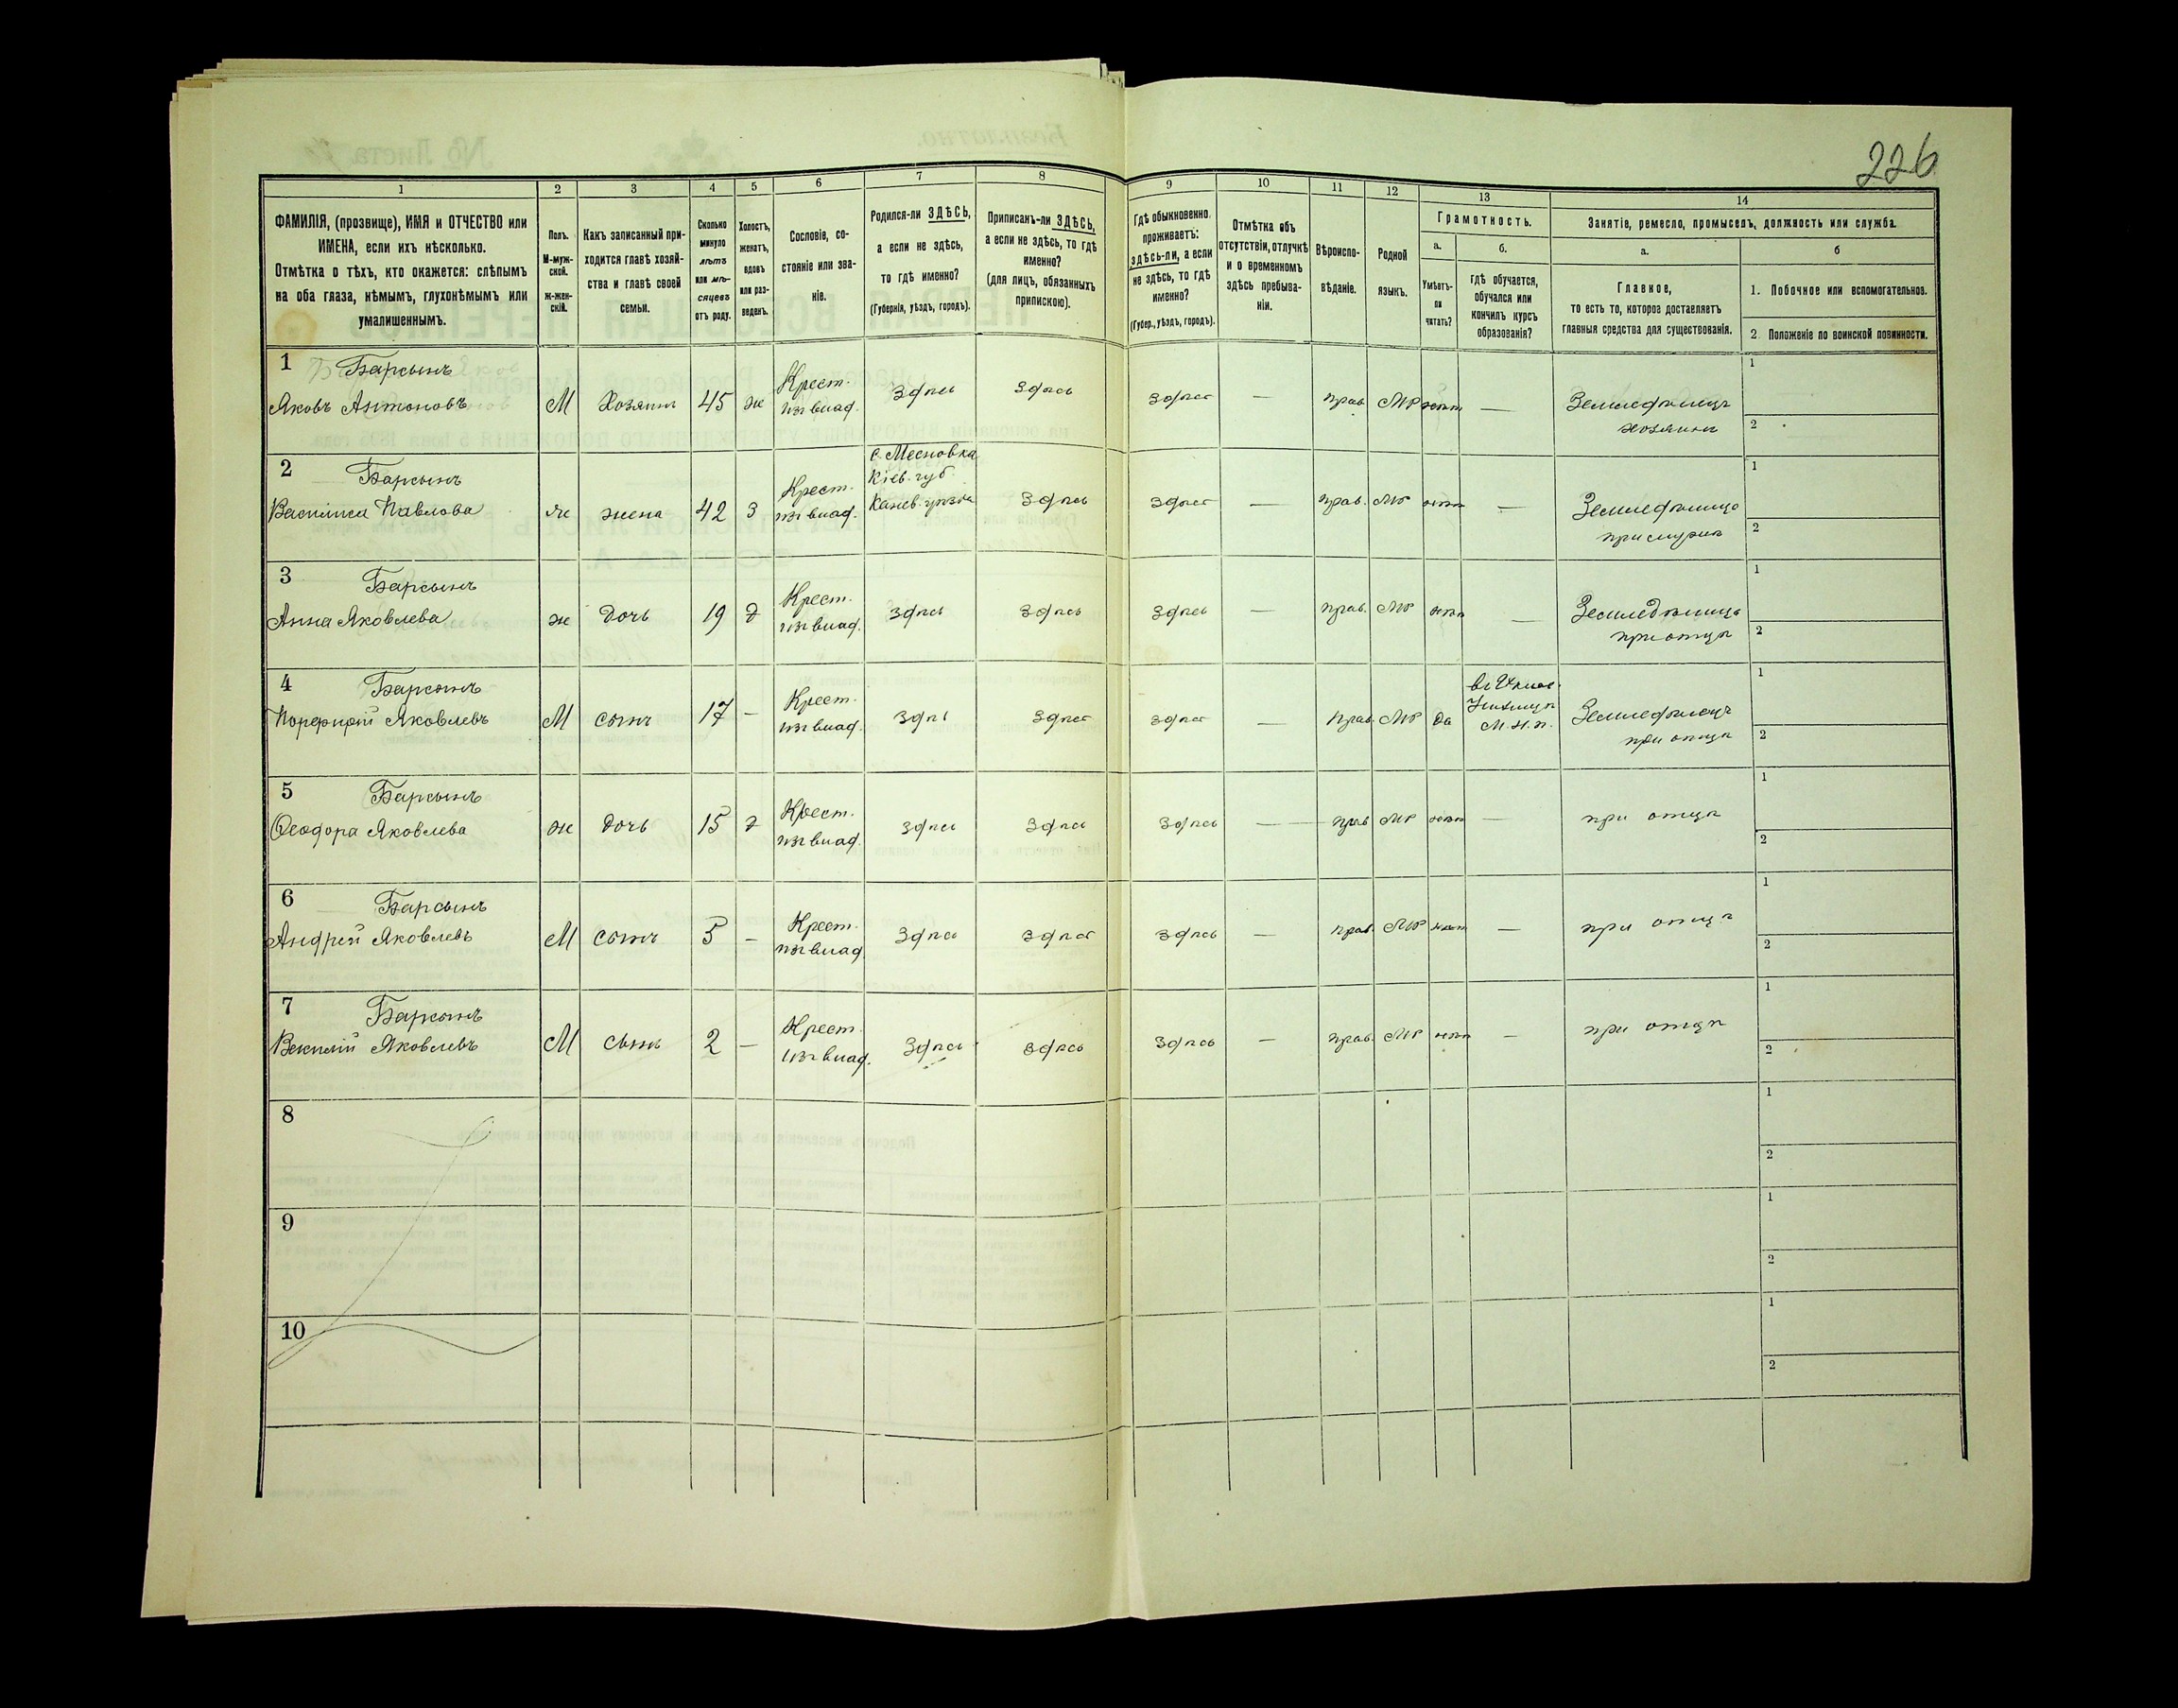 226
1
2
3
4
5
6
7
8
9
10
11
12
13
14
ФАМИЛІЯ, (прозвище), ИМЯ и ОТЧЕСТВО или
ИМЕНА, если ихъ нѣсколько.
Отмѣтка о тѣхъ, кто окажется: слѣпымъ
на оба глаза, нѣмымъ, глухонѣмымъ или
умалишеннымъ.
Полъ.
М-муж-
ской.
ж-жен-
скій.
Какъ записанный при-
ходится главѣ хозяй-
ства и главѣ своей
семьи.
Сколько
минуло
лѣтъ
или мѣ-
сяцевъ
отъ роду.
Холостъ,
женатъ,
вдовъ
или раз-
веденъ.
Сословіе, со-
стояніе или зва-
ніе.
Родился-ли ЗДѢСЬ,
а если не здѣсь,
то гдѣ именно?
(Губернія, уѣздъ, городъ).
Приписанъ-ли ЗДѢСЬ,
а если не здѣсь, то гдѣ
именно?
(для лицъ, обязанныхъ
припискою).
Гдѣ обыкновенно
проживаетъ:
здѣсь-ли, а если
не здѣсь, то гдѣ
именно?
(Губер., уѣздъ, городъ).
Отмѣтка объ
отсутствіи, отлучкѣ
и о временномъ
здѣсь пребыва-
ніи.
Вѣроиспо-
вѣданіе.
Родной
языкъ.
Грамотность.
а.
Умѣетъ-
ли
читать?
б.
гдѣ обучается,
обучался или
кончилъ курсъ
образованія?
Занятіе, ремесло, промыселъ, должность или служба.
а.
Главное,
то есть то, которое доставляетъ
главныя средства для существованія.
б
1. Побочное или вспомогательное.
2. Положеніе по воинской повинности.
1 Барсынъ
Яковъ Антоновъ
М Хозяинъ 45 ж Крест.
изъ влад. здѣсь здѣсь здѣсь — прав. МР нѣтъ — Земледѣлецъ
хозяинъ
1
2
2 Барсынъ
Василиса Павлова
ж жена 42 з Крест.
изъ влад. Кіев. губ
Канев. уѣзда здѣсь здѣсь — прав. МР нѣтъ — Земледѣлица
при мужѣ
1
2
3 Барсынъ
Анна Яковлева
ж дочь 19 д Крест.
изъ влад. здѣсь здѣсь здѣсь — прав. МР нѣтъ — Земледѣлица
при отцѣ
1
2
4 Барсынъ
Порфирій Яковлевъ
М сынъ 17 — Крест.
изъ влад. здѣсь здѣсь здѣсь — прав. МР да
М. Н. П. Земледѣлецъ
при отцѣ
1
2
5 Барсынъ
Ѳеодора Яковлева
ж дочь 15 д Крест.
изъ влад. здѣсь здѣсь здѣсь — прав. МР нѣтъ — при отцѣ
1
2
6 Барсынъ
Андрей Яковлевъ
М сынъ 5 — Крест.
изъ влад. здѣсь здѣсь здѣсь — прав. МР нѣтъ — при отцѣ
1
2
7 Барсынъ
Яковлевъ
М сынъ 2 — Крест.
изъ влад. здѣсь здѣсь здѣсь — прав. МР нѣтъ — при отцѣ
1
2
8
1
2
9
1
2
10
1
2